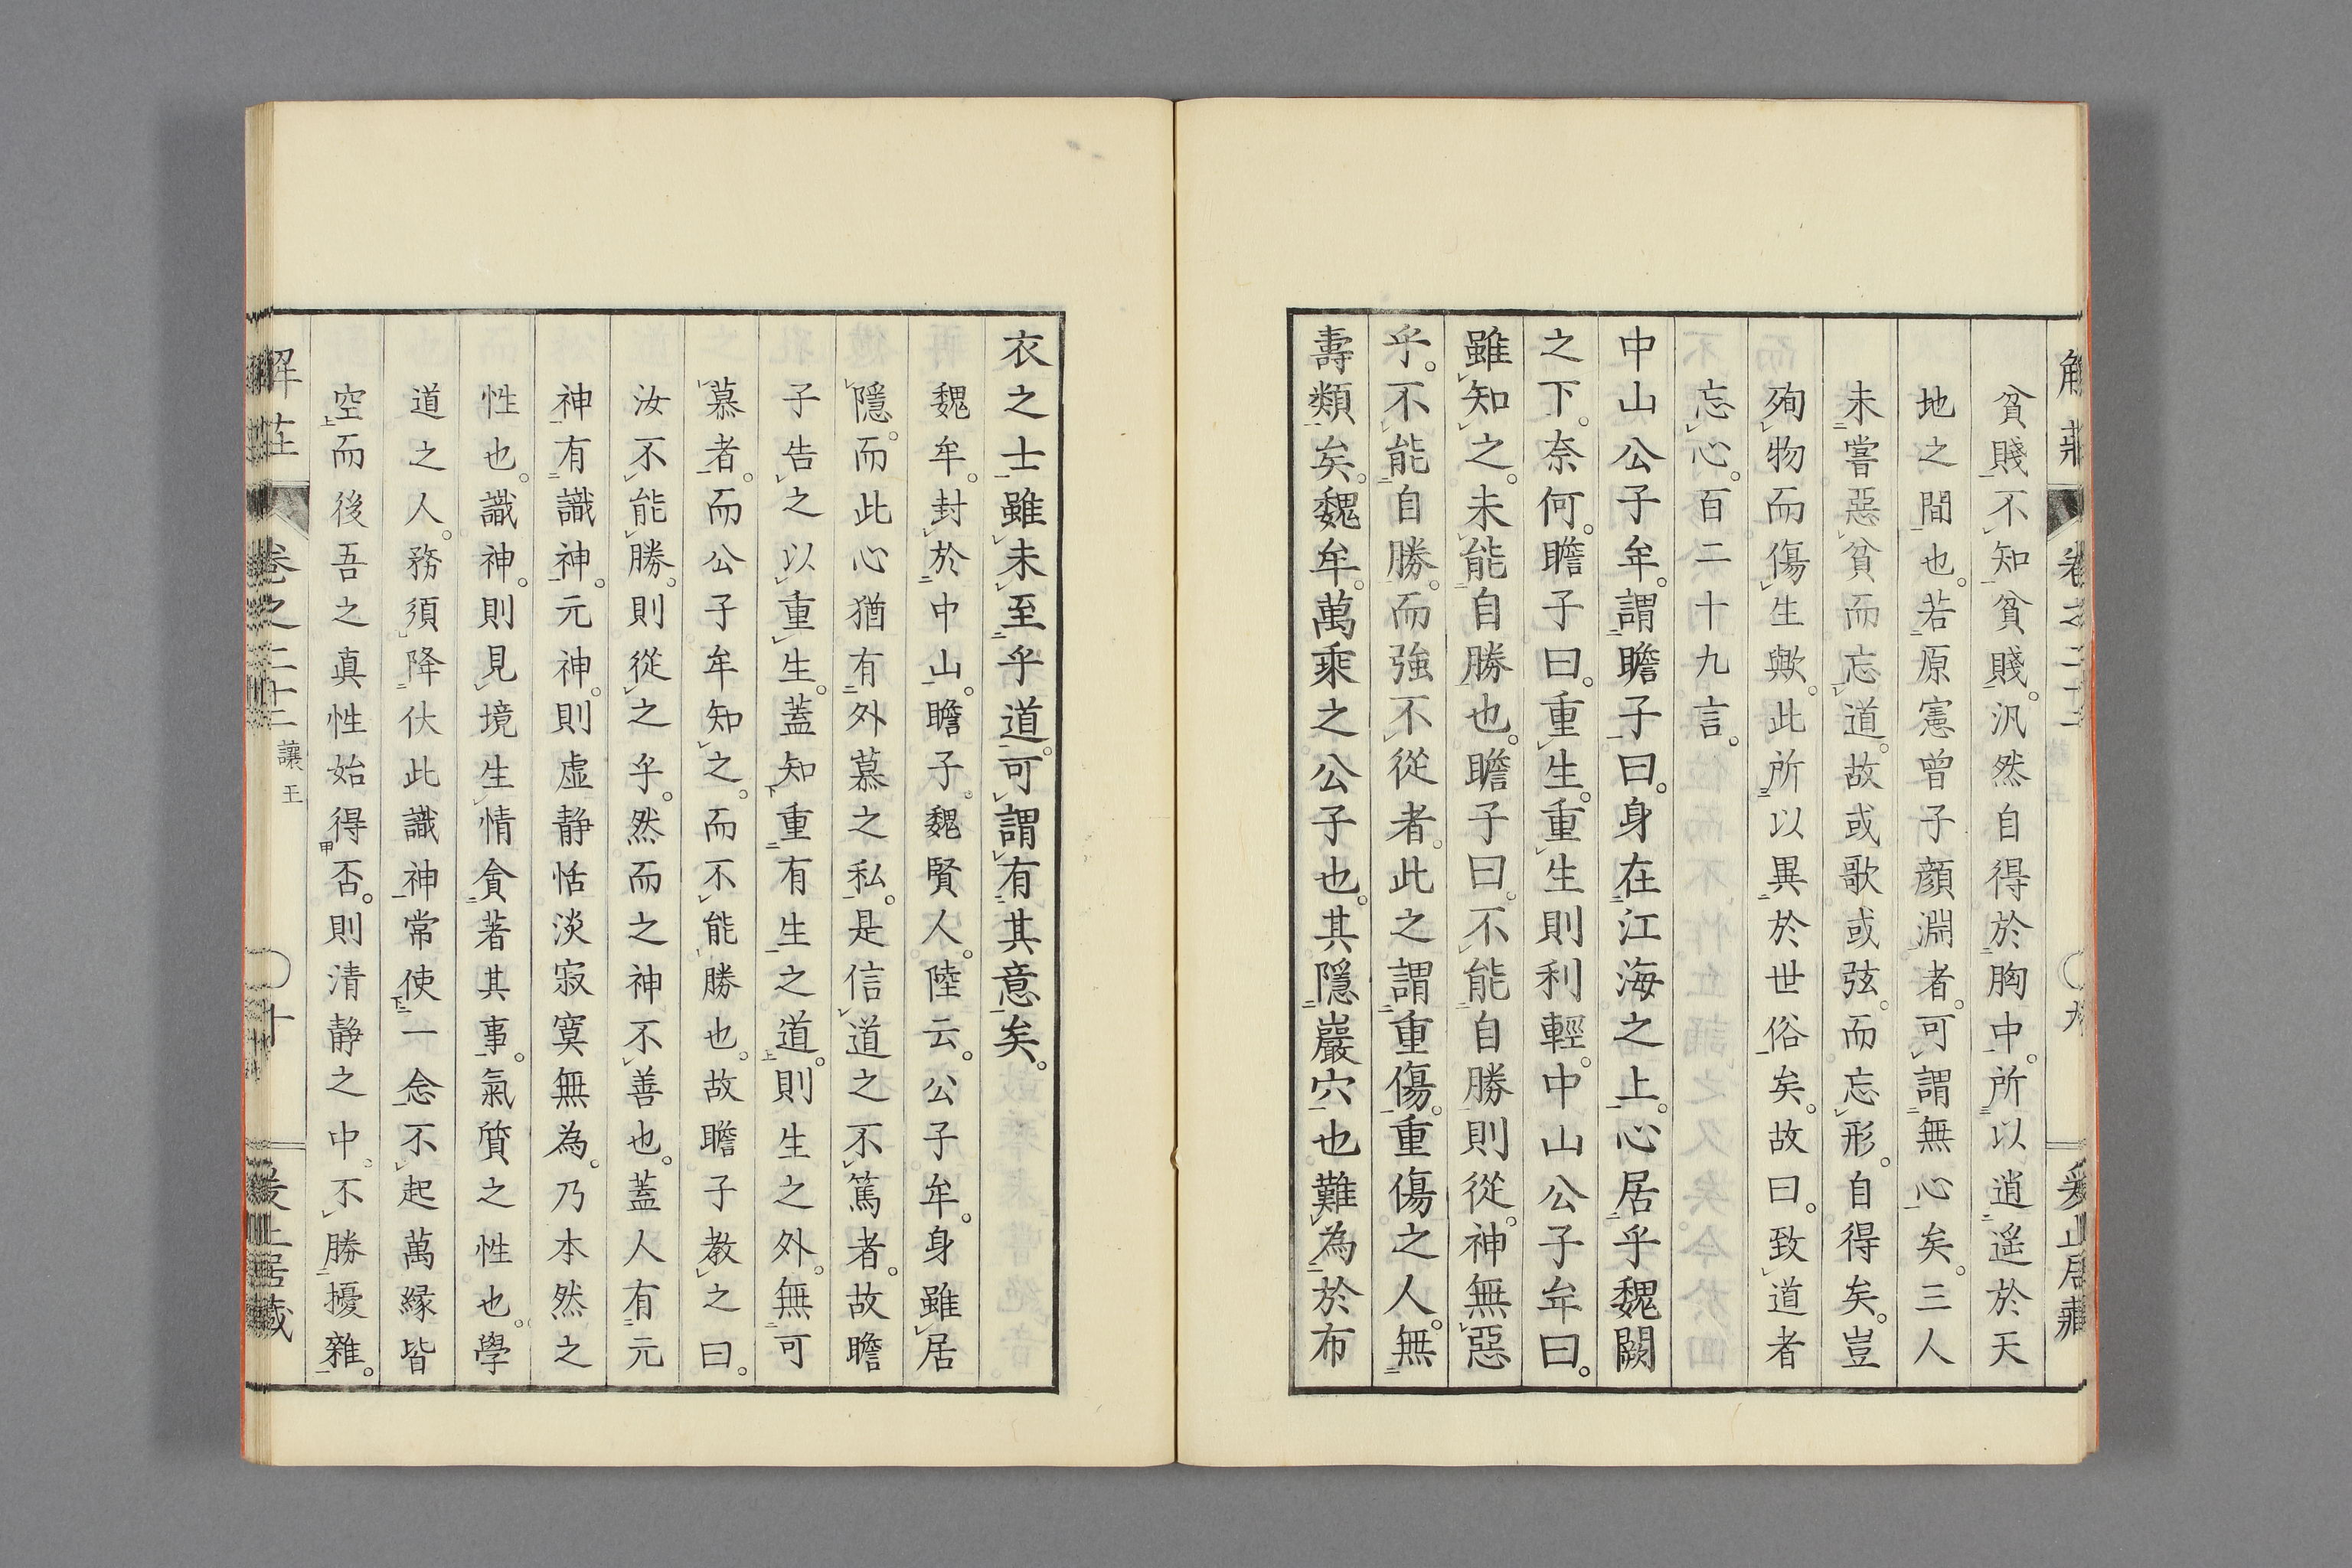 貧賤不知貧賤。汎然自得於胸中。所以逍遥於天
地之間也。若原憲曾子顔淵者。可謂無心矣。三人
未嘗惡貧而忘道。故或歌或弦。而忘形。自得矣。豈
殉物而傷生歟。此所以異於世俗矣。故曰。致道者
忘心。百二十九言。
中山公子牟。謂瞻子曰。身在江海之上。心居乎魏闕
之下。奈何。瞻子曰。重生。重生則利輕。中山公子牟曰。
雖知之。未能自勝也。瞻子曰。不能自勝則從。神無惡
乎。不能自勝。而強不從者。此之謂重傷。重傷之人。無
壽類矣。魏牟。萬乘之公子也。其隱巖穴也難為於布
衣之士。雖未至乎道。可謂有其意矣。
魏牟。封於中山。瞻子。魏賢人。陸云。公子牟。身雖居
隱。而此心猶有外慕之私。是信道之不篤者。故瞻
子告之以重生。蓋知重有生之道。則生之外。無可
慕者。而公子牟知之。而不能勝也。故瞻子教之曰。
汝不能勝。則從之乎。然而之神不善也。蓋人有元
神有識神。元神。則虚静恬淡寂寞無為。乃本然之
性也。識神。則見境生情貪著其事。氣質之性也。學
道之人。務須降伏此識神常使一念不起萬縁皆
空而後吾之真性始得否。則清静之中。不勝擾雜。
解莊
卷之二十二
讓王
十